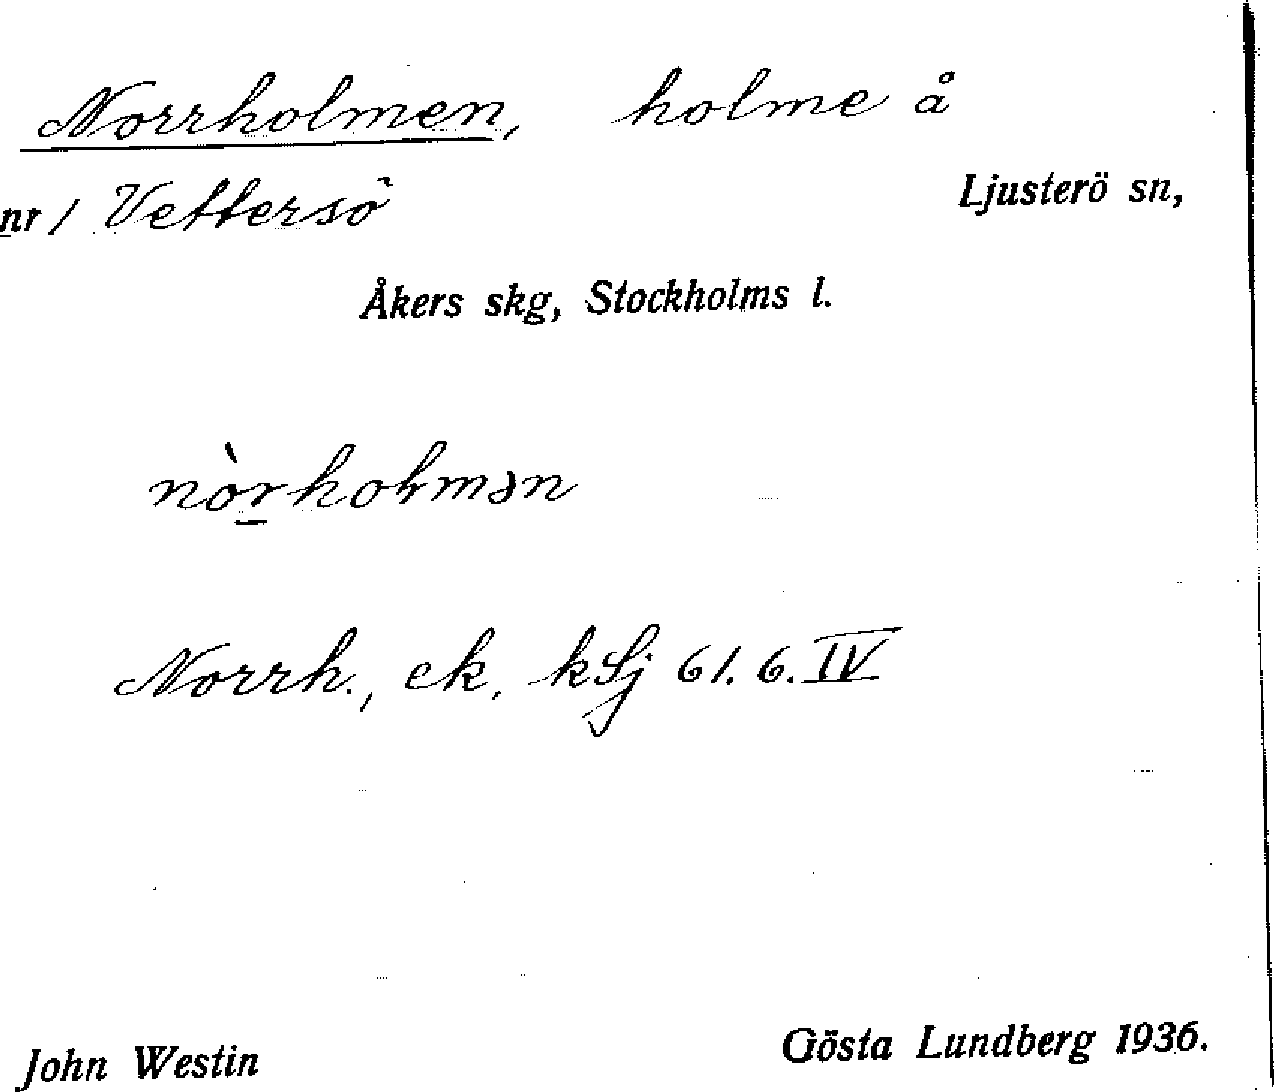 Norrholmen, holme å
nr 1 Vettersö Ljusterö sn,
Åkers skg, Stockholms l.
nòr̲hoƚmən
Norrh., ek, kLj 61.6.IV
John Westin Gösta Lundberg 1936.